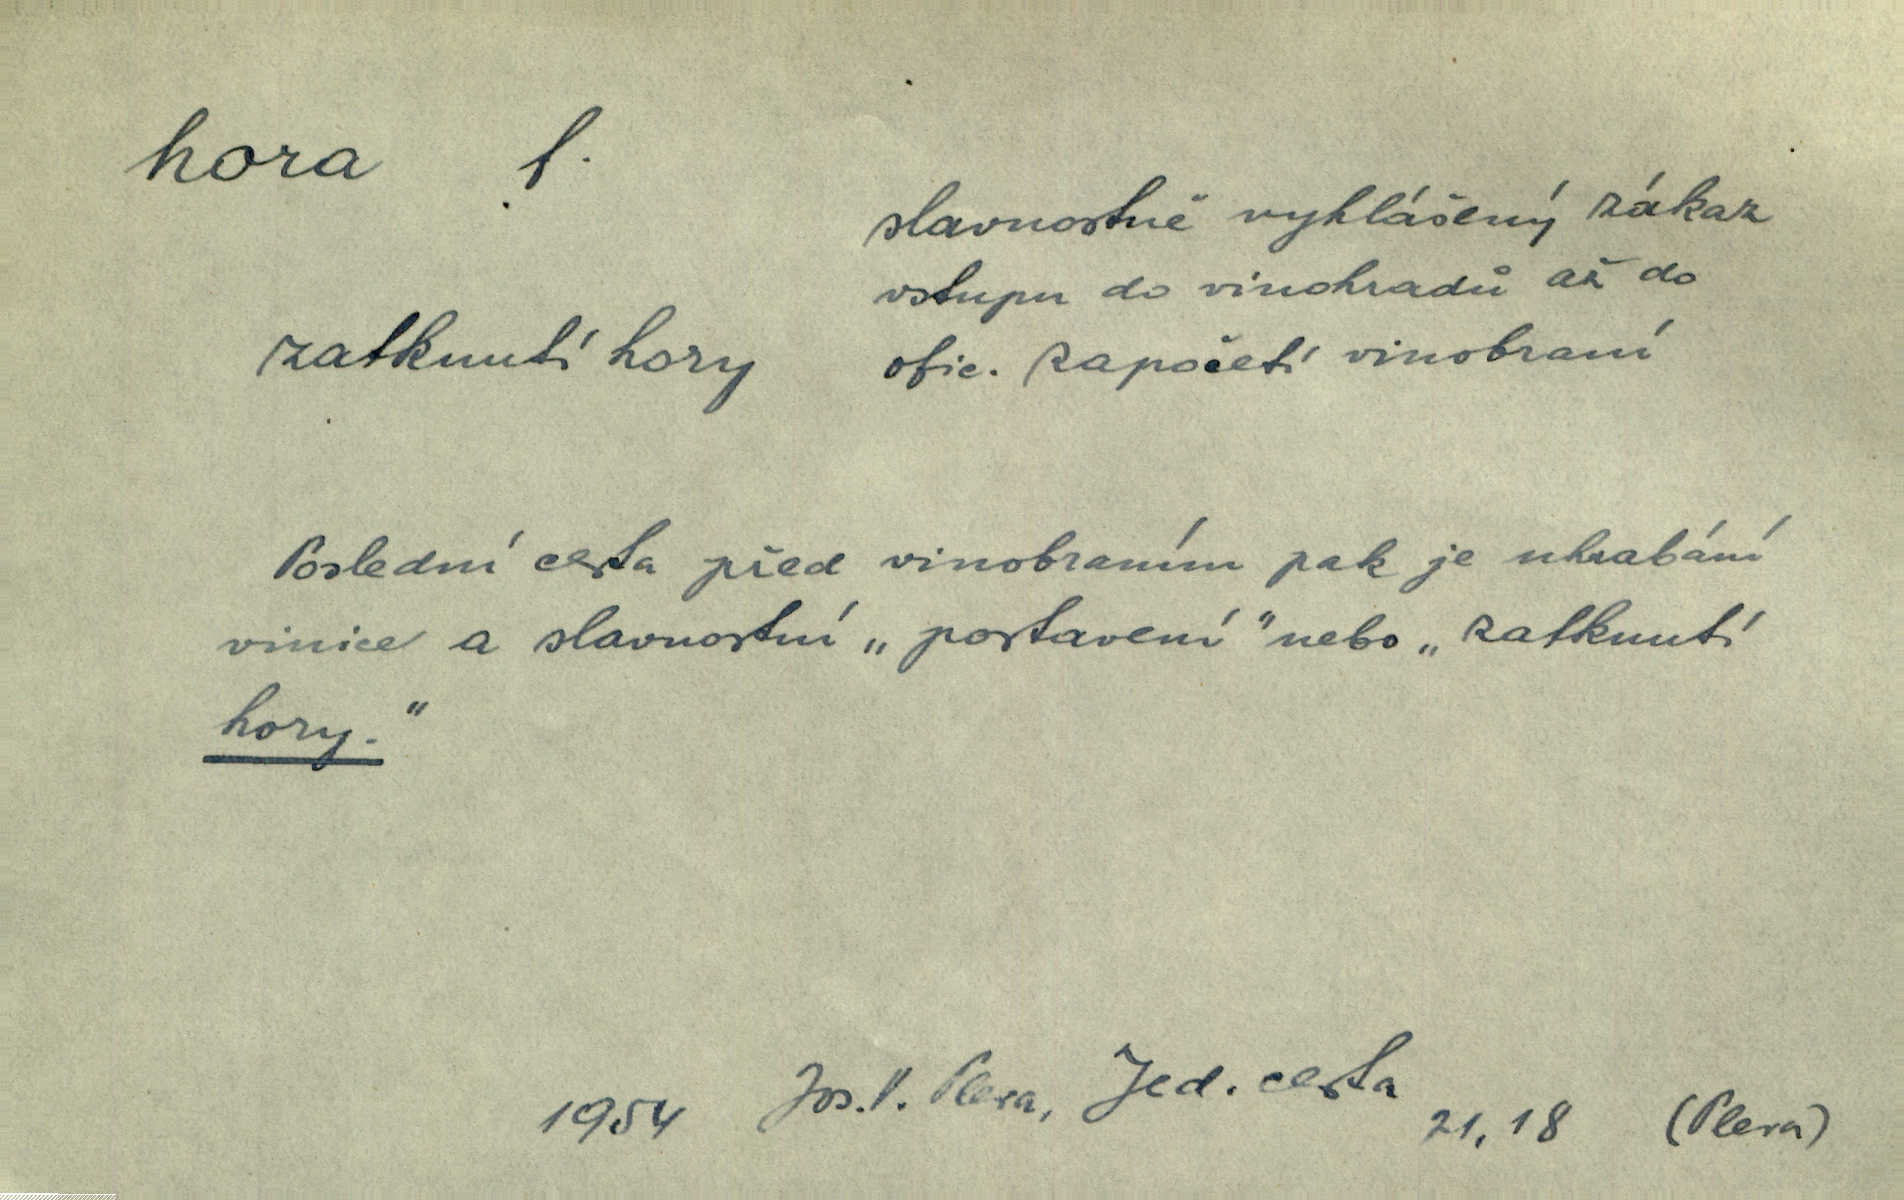 hora f.
slavnostně vyhlášený zákaz
vstupu do vinohradů až do
zatknutí hory
ofic. započetí vinobraní
Poslední cesta před vinobraním pak je uhrabání
vinice a slavnostní „postavení" nebo „zatknutí
hory."
1954 Jos. V. Pleva, Jed. cesta 21, 18 (Pleva)